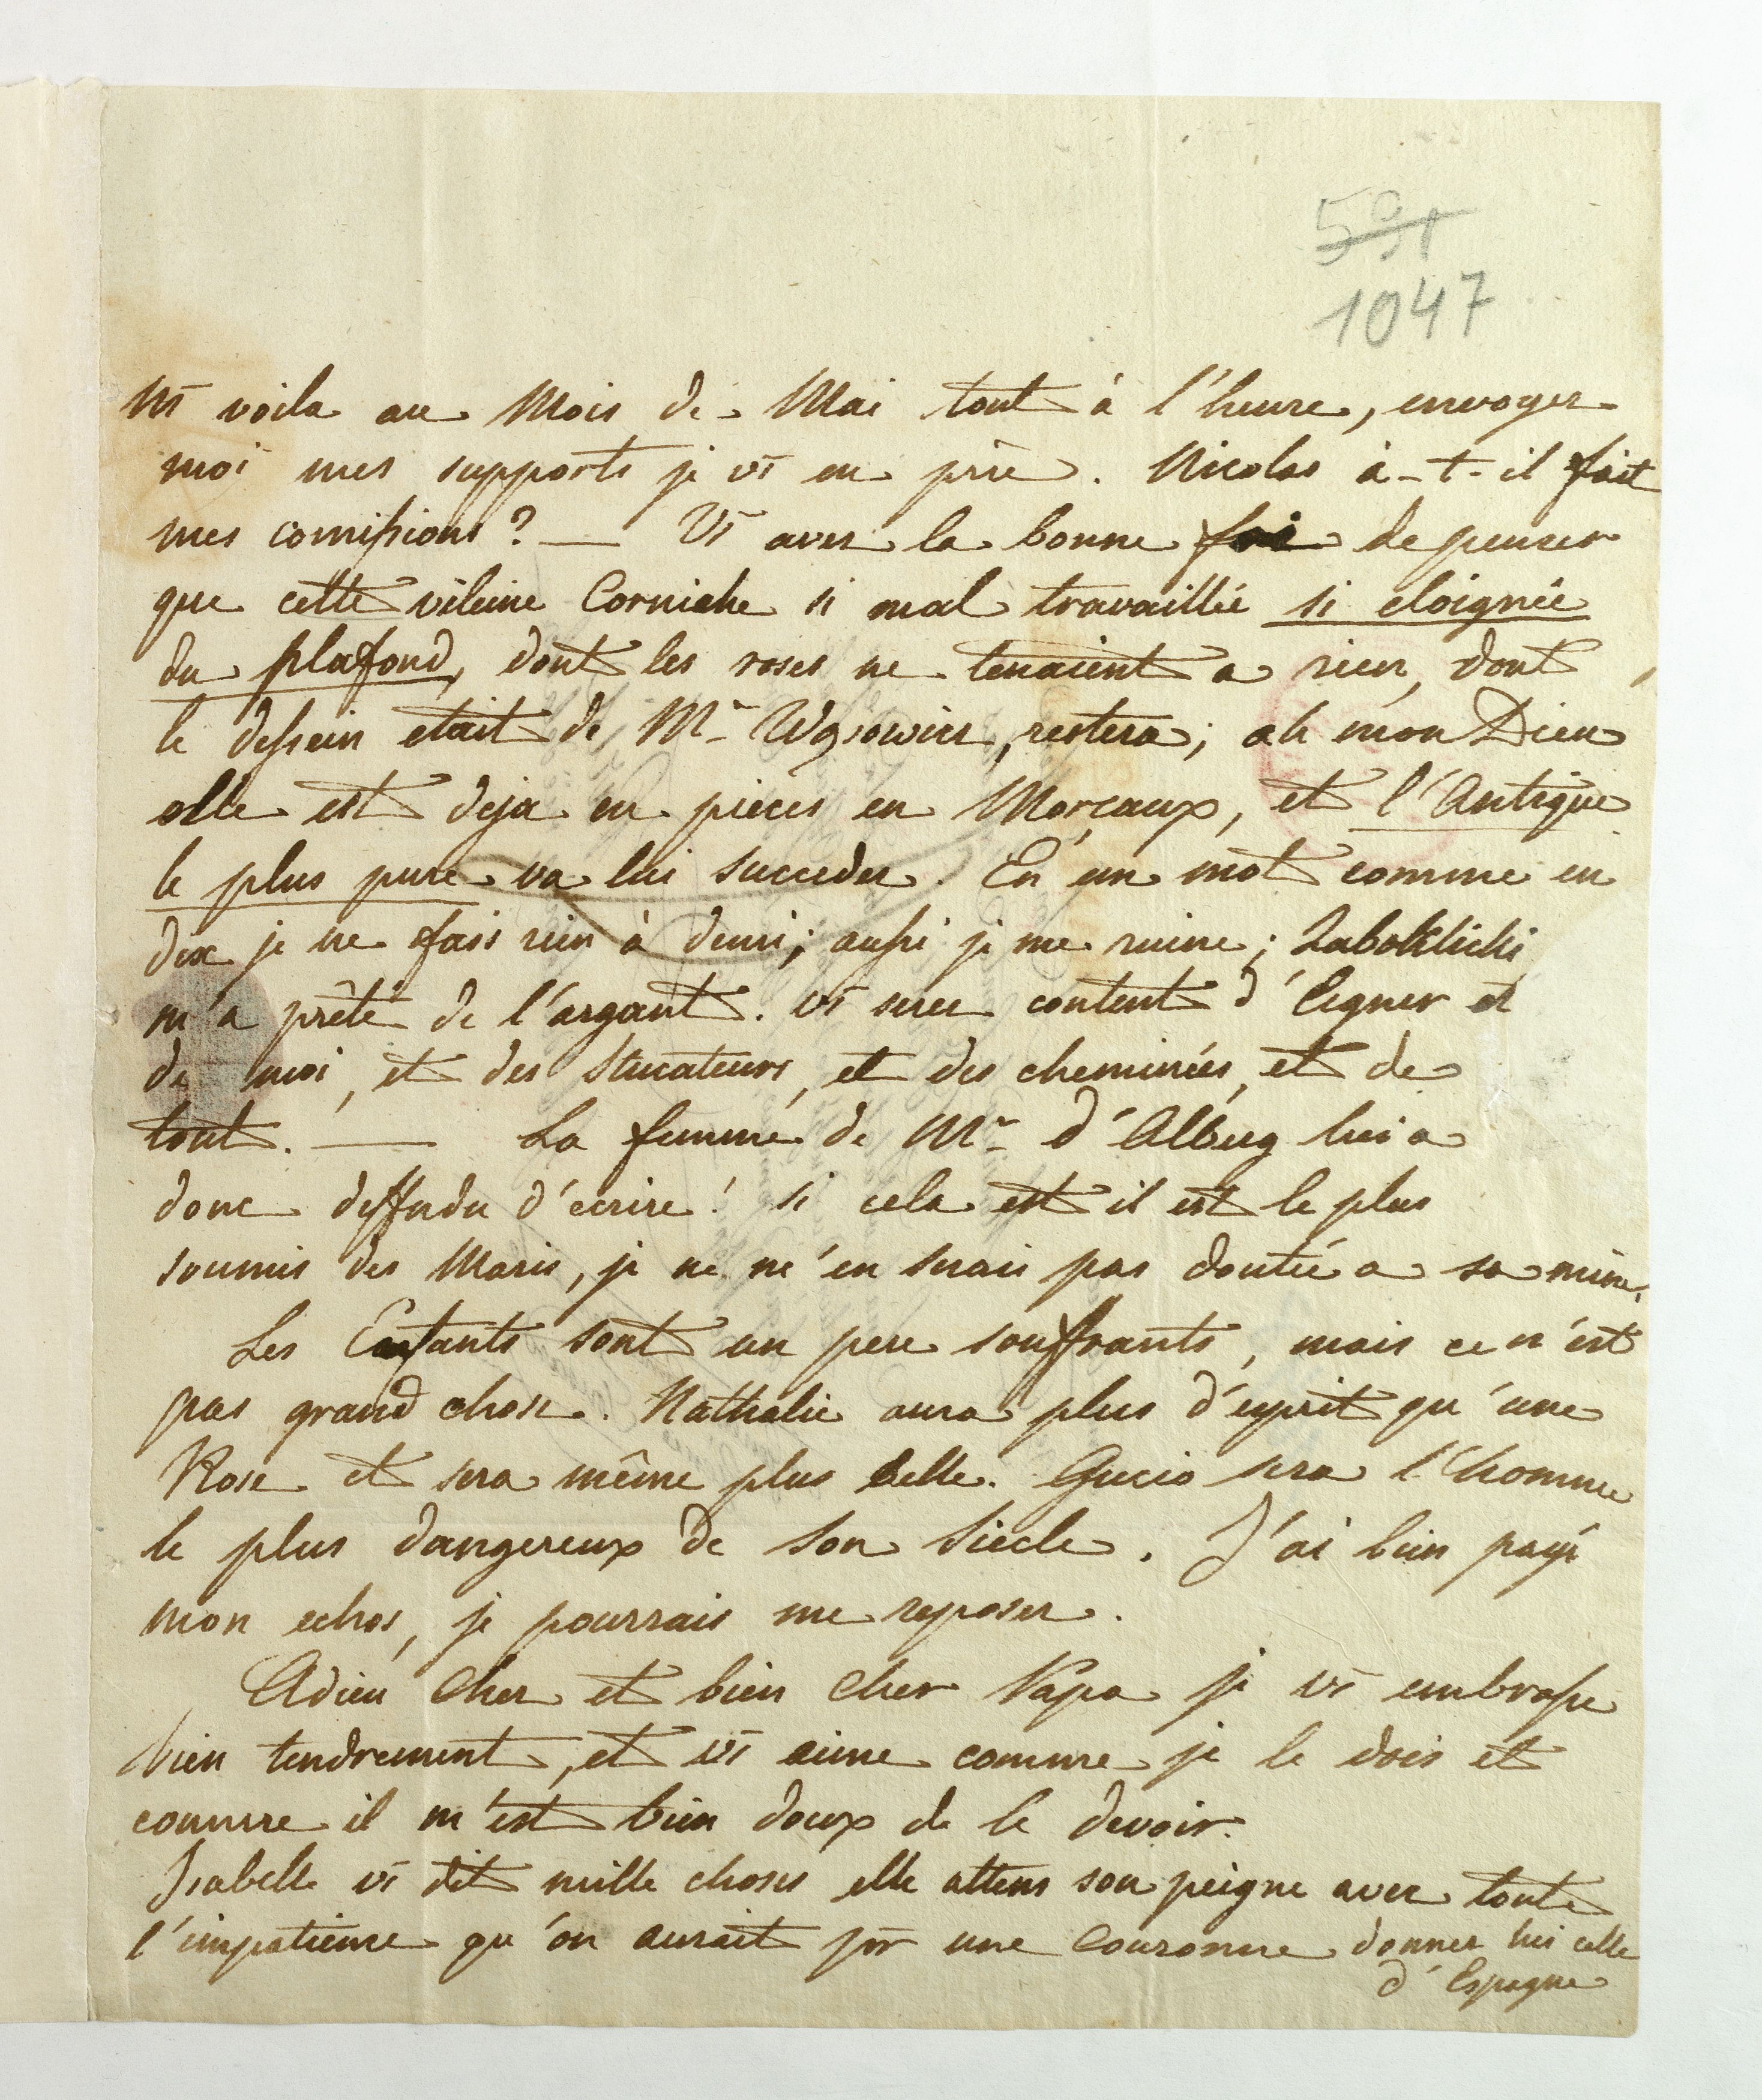 591
1047
Ns voila au Mois de Mai tout à l'heure, envoyer
moi mes supports je vs en prie. Nicolas à-t-il fait
mes comissions? — Vs avez la bonne foi de penser
que cette vileine Corniche si mal travaillée si eloignée
du plafond, dont les roses ne tenaient a rien, dont
le dessein etait de Mr Wąsowicz, restera; ah mon Dieu
elle est deja en pieces en Morçaux, et l'Antique
le plus pure va lui succeder. En un mot comme en
dix je ne fais rien à demi; aussi je me ruine; Zaboklicki
m'a prêté de l'argant. vs serez content d'Aigner et
de moi, et des Stucateurs, et des cheminées, et de
tout. — La femme de Mr d'Alberg lui a
donc deffendu d'ecrire! si cela est il est le plus
soumis des Maris, je ne m'en serais pas doutée a sa mine.
Les Enfants sont un peu souffrants, mais ce n'est
pas grand chose. Nathalie aura plus d'esprit qu'une
Rose et sera même plus belle. Gucio sera l'homme
le plus dangereux de son Siecle. J'ai bien payé
mon echos, je pourrais me reposer.
Adieu Cher et bien cher Papa je vs embrasse
bien tendrement, et vs aime comme je le dois et
comme il m'est bien doux de le devoir.
Isabelle vs dit mille choses elle attens son peigne avec toute
l'impatience qu'on aurait pr une Couronne donnez lui celle
d'Espagne